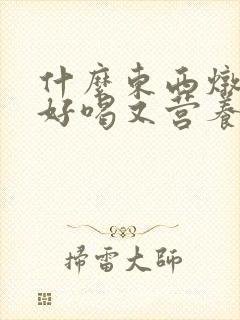 什麼東西燉
好喝又营養
掃雷大師